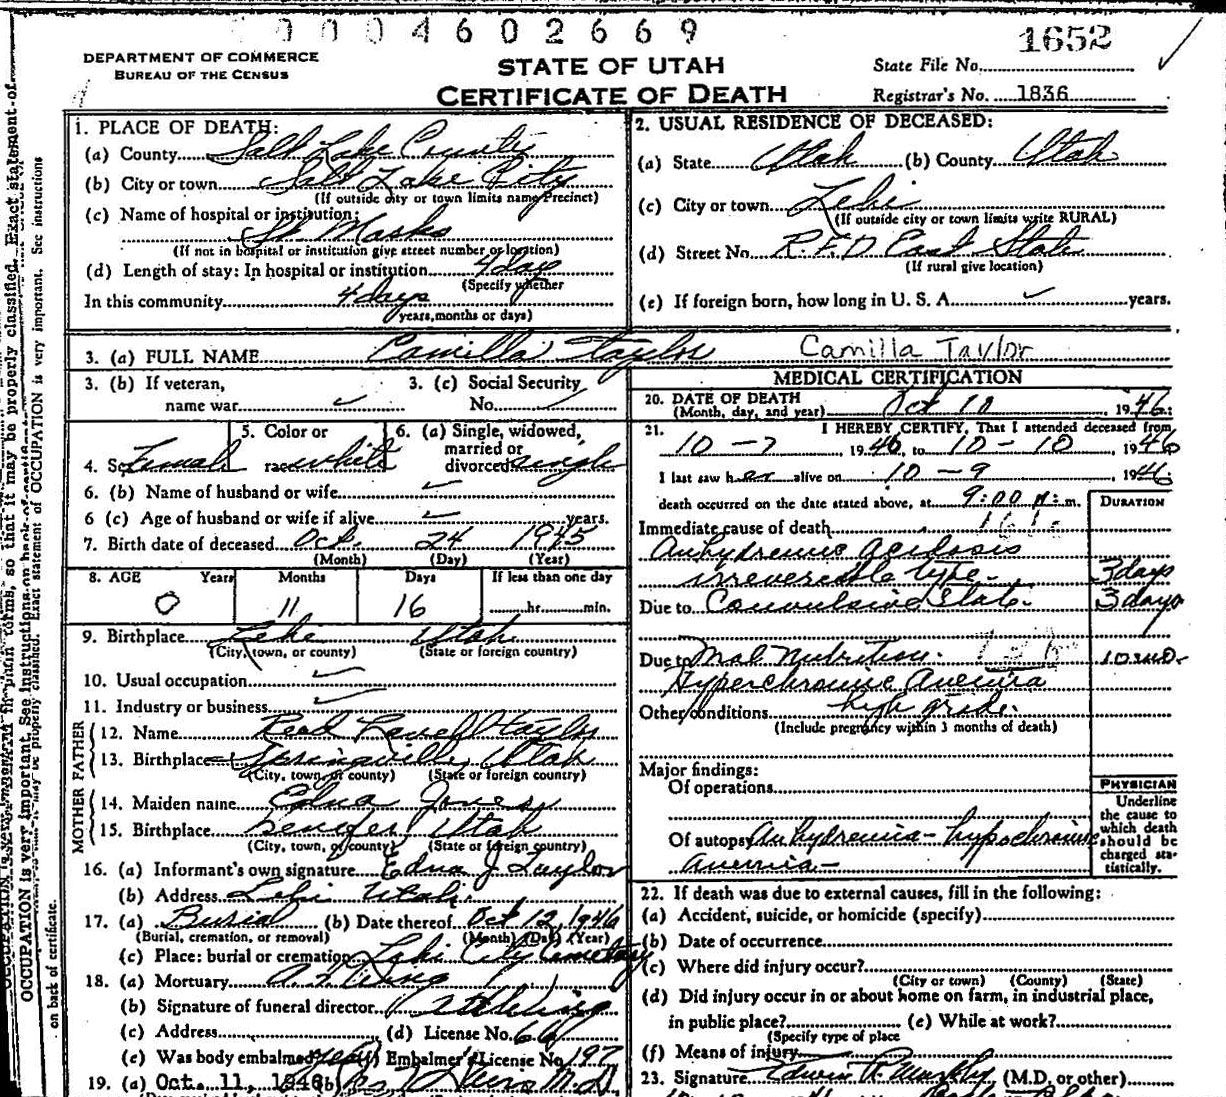 0004602669
1652
DEPARTMENT OF COMMERCE
BUREAU OF THE CENSUS
STATE OF UTAH
CERTIFICATE OF DEATH
State File No.
Registrar's No. 1836
1. PLACE OF DEATH:
(a) County Salt Lake County
(b) City or town Salt Lake City
(If outside city or town limits name Precinct)
(c) Name of hospital or institution:
St. Marks
(If not in hospital or institution give street number or location)
(d) Length of stay: In hospital or institution 4 days
(Specify whether
In this community 4 days
years, months or days)
2. USUAL RESIDENCE OF DECEASED:
(a) State Utah (b) County Utah
(c) City or town Lehi
(If outside city or town limits write RURAL)
(d) Street No. R.F.D East State
(If rural give location)
(e) If foreign born, how long in U. S. A. years.
3. (a) FULL NAME Camilla Taylor Camilla Taylor
3. (b) If veteran,
name war
3. (c) Social Security
No.
4. Sex Female
5. Color or
race white
6. (a) Single, widowed,
married or
divorced single
6. (b) Name of husband or wife
6 (c) Age of husband or wife if alive years.
7. Birth date of deceased Oct. 24 1945
(Month) (Day) (Year)
8. AGE Years Months Days If less than one day
0 11 16 hr. min.
9. Birthplace Lehi Utah
(City, town, or county) (State or foreign country)
10. Usual occupation
11. Industry or business
FATHER
12. Name Read Taylor
13. Birthplace Springville, Utah
(City, town, or county) (State or foreign country)
MOTHER
14. Maiden name Edna Jones
15. Birthplace Utah
(City, town, or county) (State or foreign country)
16. (a) Informant's own signature Edna J Taylor
(b) Address Lehi Utah.
17. (a) Burial (b) Date thereof Oct 12, 1946
(Burial, cremation, or removal) (Month) (Day) (Year)
(c) Place: burial or cremation Lehi City Cemetary
18. (a) Mortuary A. Wing
(b) Signature of funeral director
(c) Address (d) License No.
(e) Was body embalmed Embalmer's License No. 197
19. (a) Oct. 11, 1946 (b) M.D.
MEDICAL CERTIFICATION
20. DATE OF DEATH
(Month, day, and year) Oct 10 , 1946:
21. I HEREBY CERTIFY, That I attended deceased from
10 - 7 , 1946, to 10 - 10 , 1946
I last saw her alive on 10 - 9 , 1946.
death occurred on the date stated above, at 9:00 m.
DURATION
Immediate cause of death
Anhydremic acidosis
irreversible type. 3 days
Due to Convulsive State. 3 days
Due to Mal Nutrition. 10 mo.
Hyperchromic Anemia
Other conditions high grade.
(Include pregnancy within 3 months of death)
Major findings:
Of operations
Of autopsy Anhydremia - hypochromic
anemia -
PHYSICIAN
Underline
the cause to
which death
should be
charged sta-
tistically.
22. If death was due to external causes, fill in the following:
(a) Accident, suicide, or homicide (specify)
(b) Date of occurrence
(c) Where did injury occur?
(City or town) (County) (State)
(d) Did injury occur in or about home on farm, in industrial place,
in public place? (e) While at work?
(Specify type of place
(f) Means of injury
23. Signature Edwin R. Murphy (M.D. or other)
OCCUPATION is very important. See instructions on back of certificate.
Exact statement of OCCUPATION is very important. See instructions
on back of certificate.
so that it may be properly classified. Exact statement of